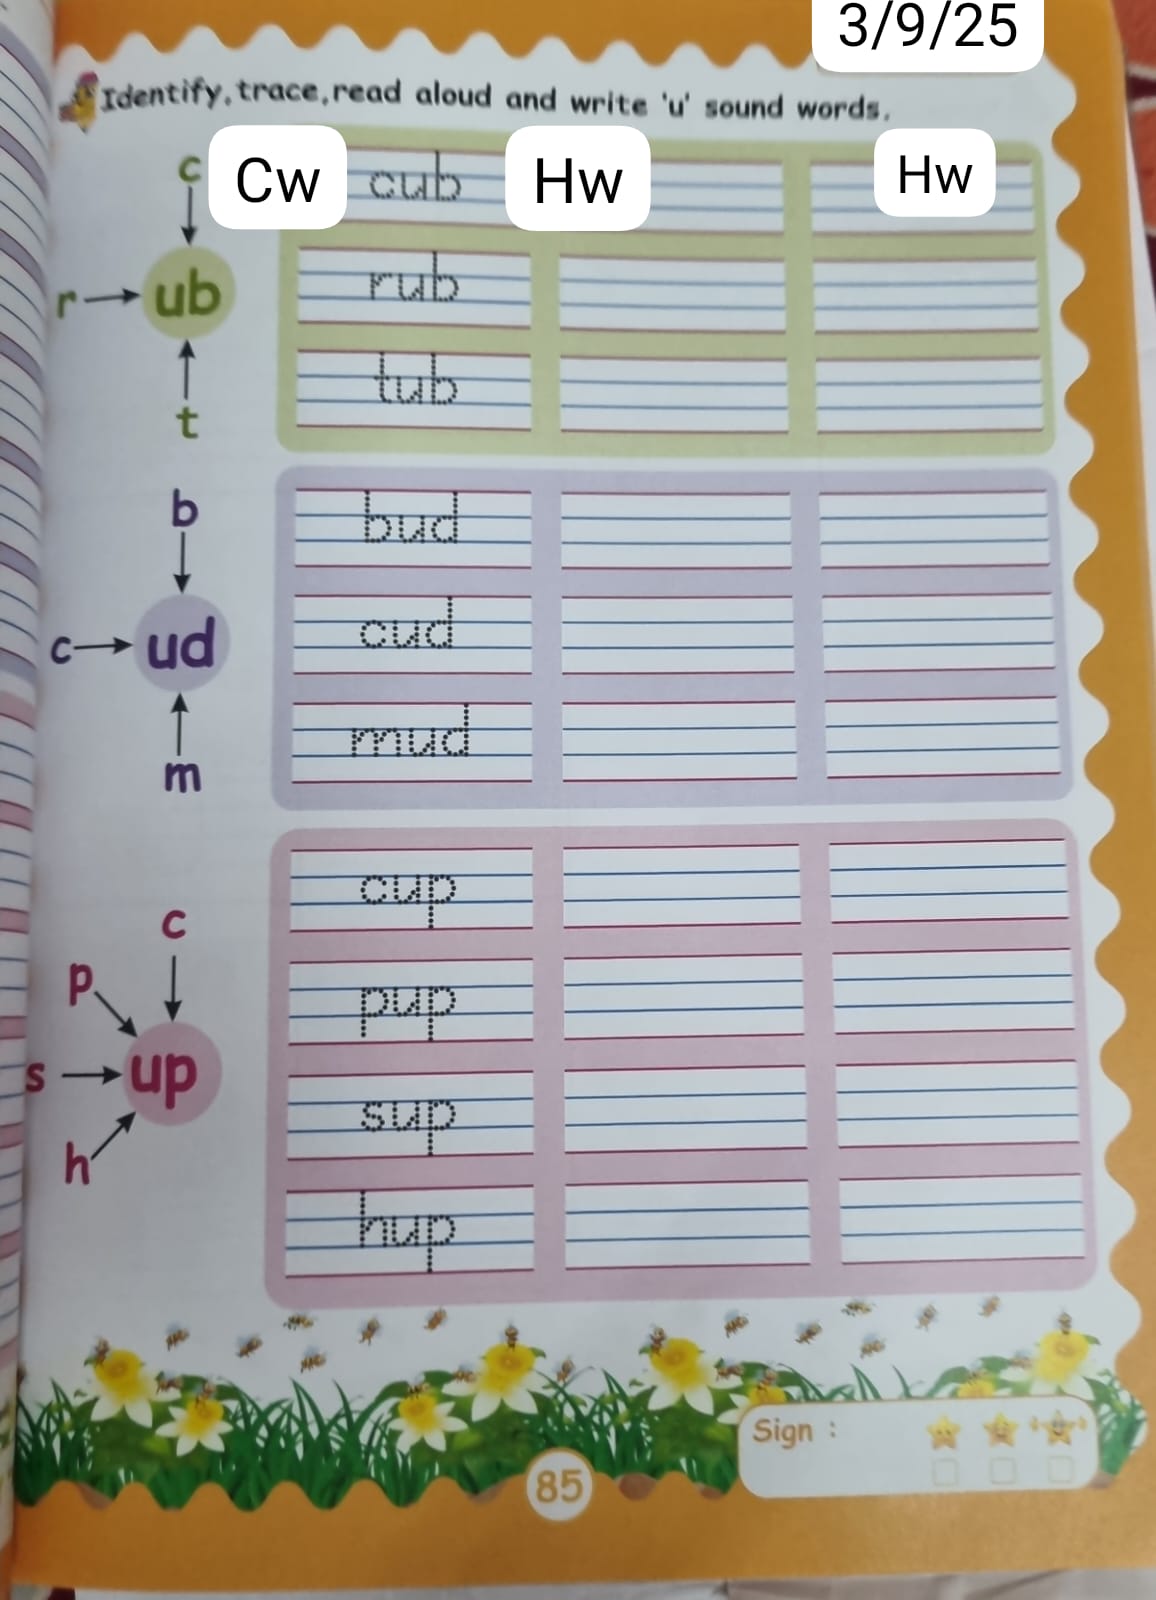 3/9/25
Identify, trace, read aloud and write 'u' sound words.
Cw Hw Hw
c
cub
r ub
rub
t
tub
b
bud
c ud
cud
m
mud
c
cup
p
pup
s up
sup
h
hup
Sign :
85